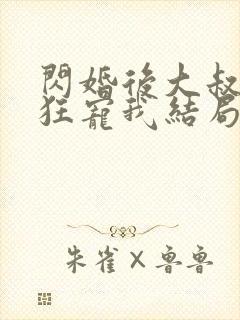 閃婚後大叔
狂寵我結局
朱雀×魯魯